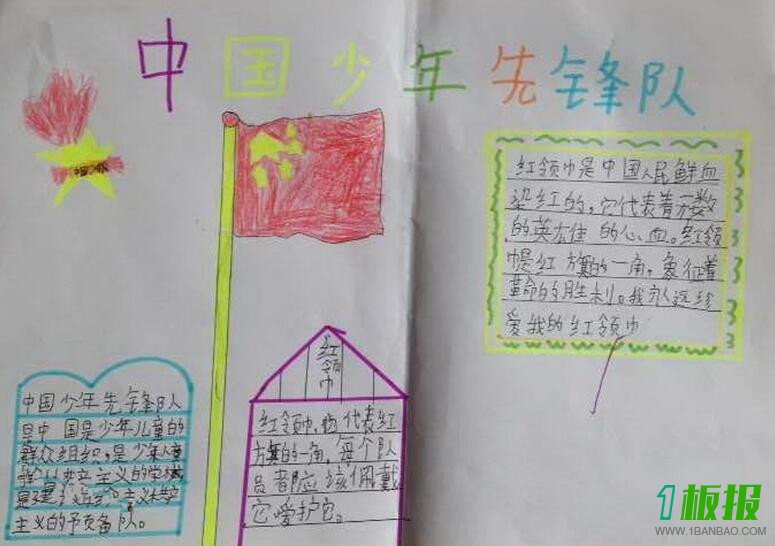 中国少年先锋队
红领巾是中国人民鲜血
染红的,它代表着无数
的英雄 的心血。红领
巾是红方旗的一角。象征着
革命的胜利。我永远珍
爱我的红领巾
红领巾
红领巾, 代表红
方旗的一角,每个队
员都应该佩戴
它爱护它。
中国少年先锋队人
是中国是少年儿童的
群众组织,是少年儿童
共产主义的学
是建 主义 共产
主义的予页备队。
1板报
WWW.1BANBAO.COM